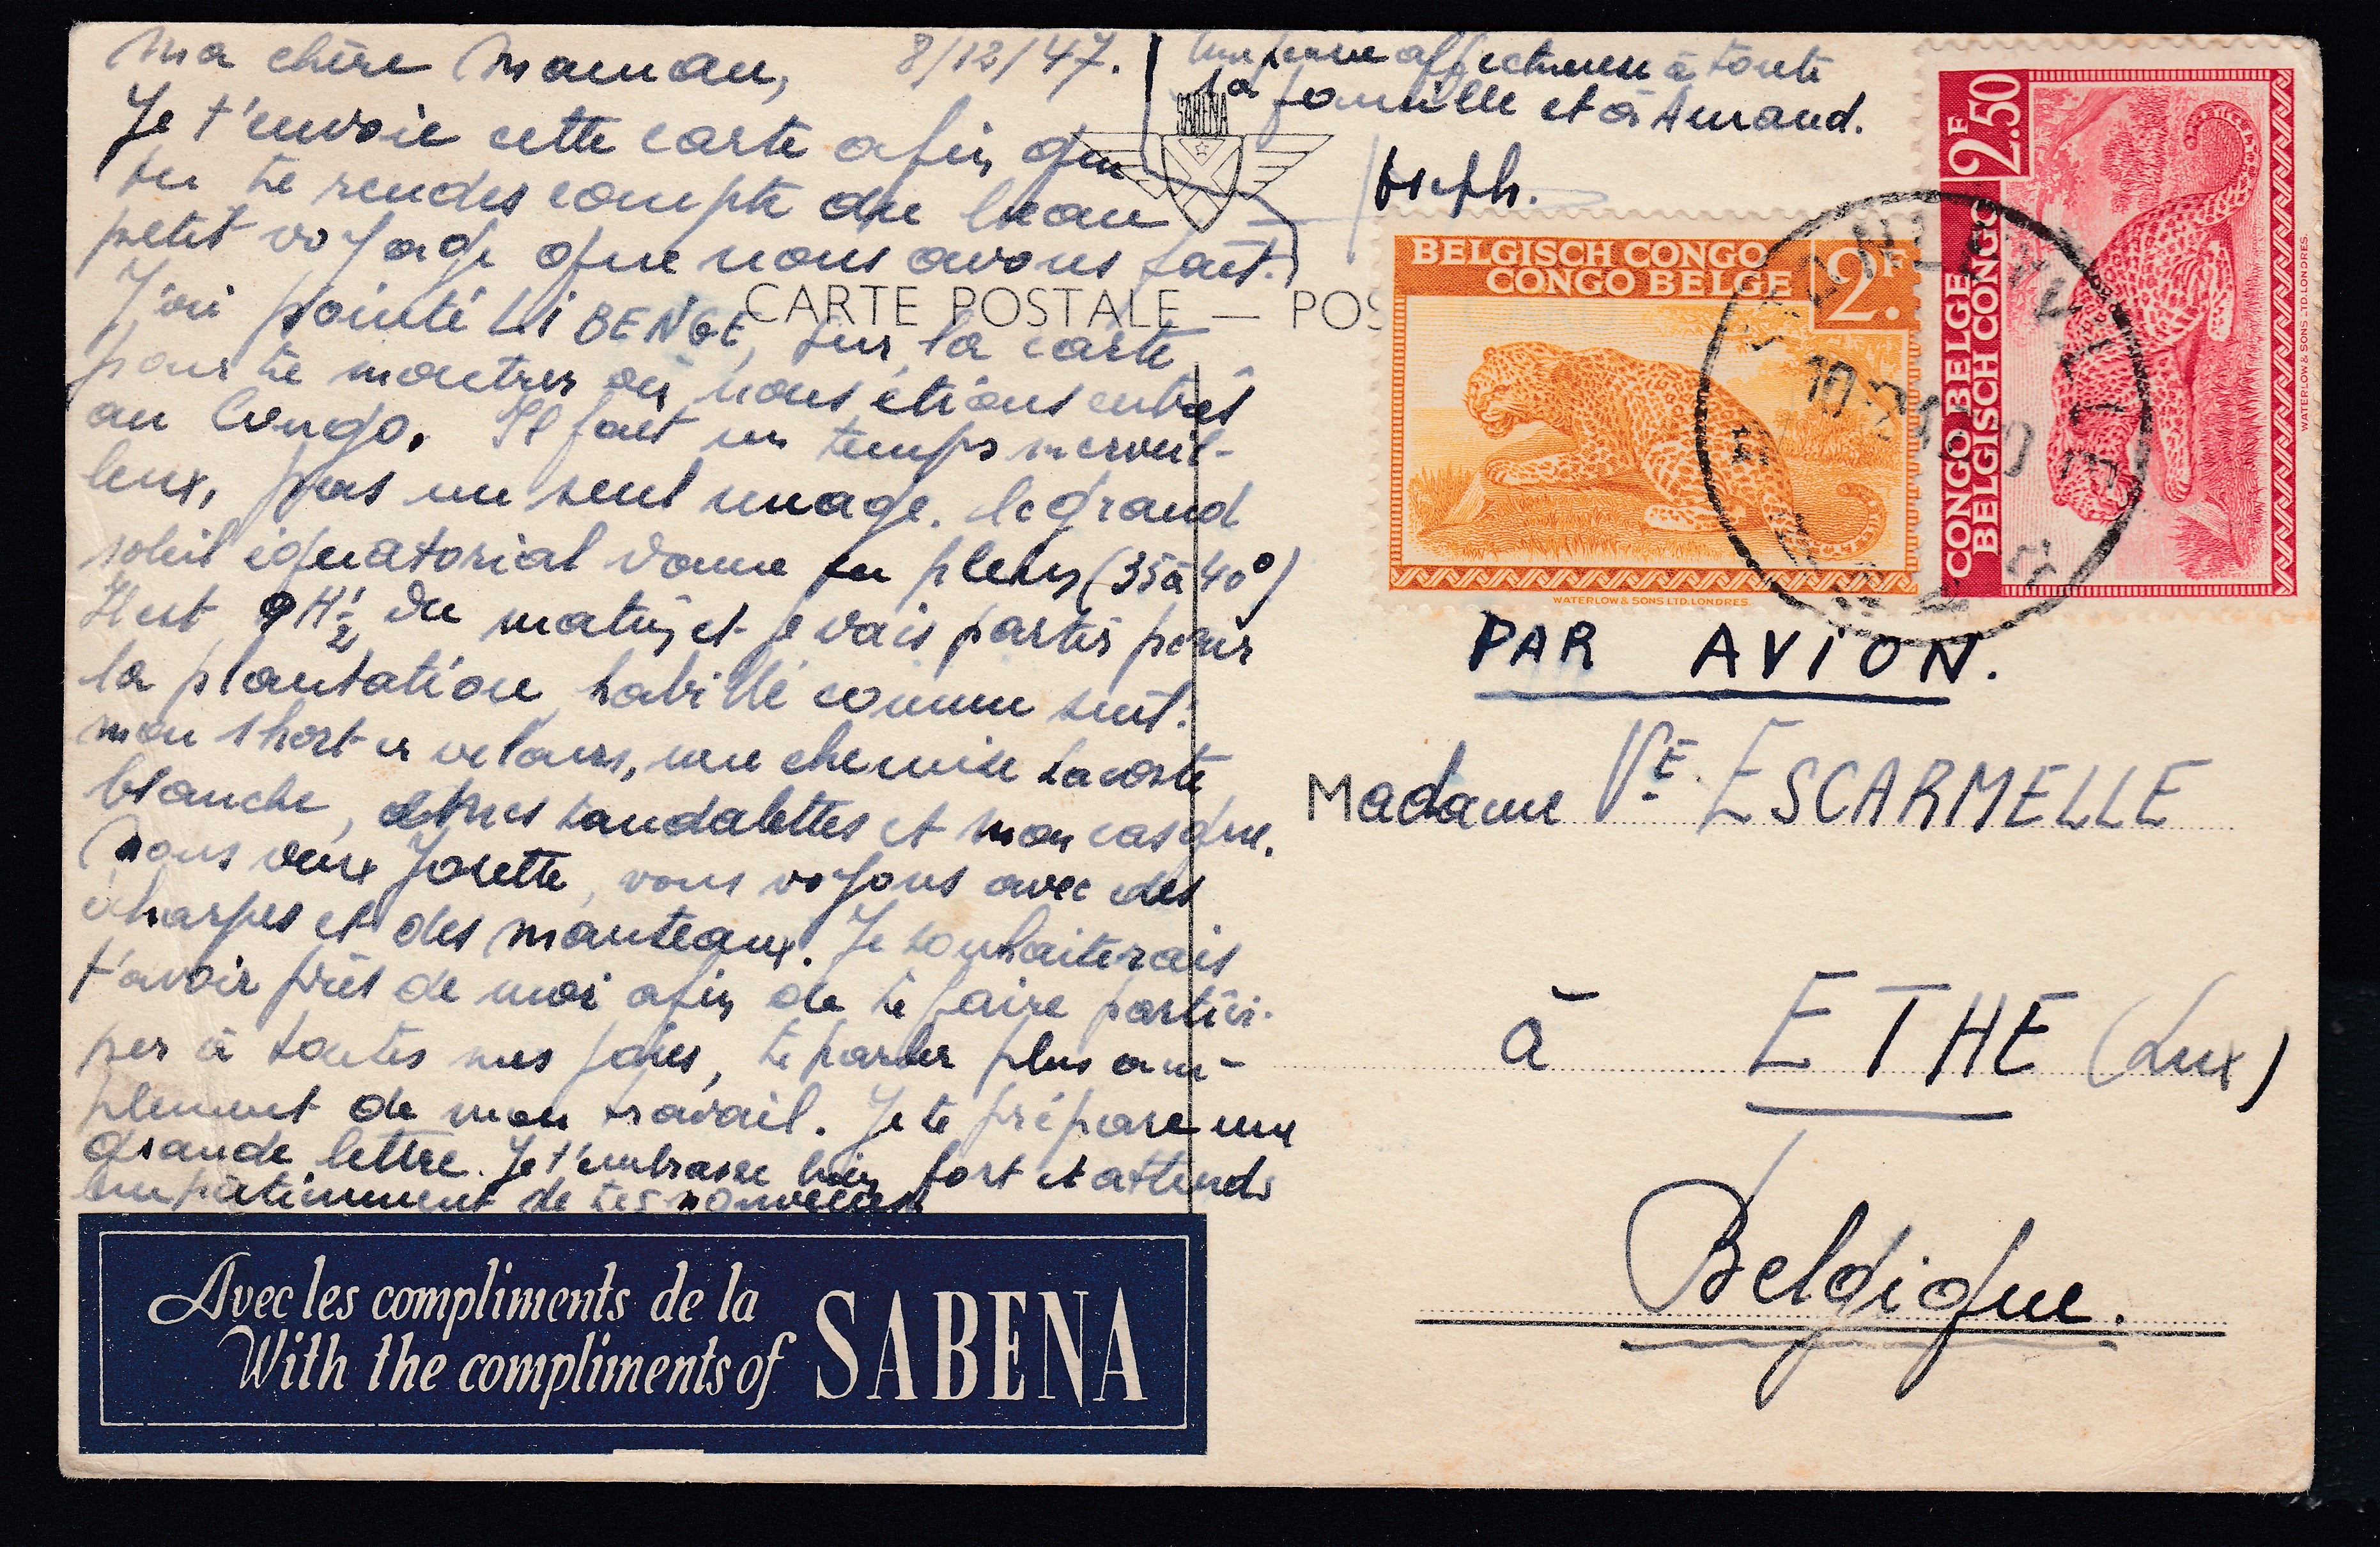 Ma chère Maman, 8/12/47.
Je t'envoie cette carte afin que
tu te rendes compte du beau
petit voyage que nous avons fait.
J'ai pointé LIBENGE, sur la carte
pour te montrer où nous étions entrés
au Congo. Il fait un temps merveil-
leux, pas un seul nuage. le grand
soleil équatorial donne en plein (35 à 40°)
Il est 9H½ du matin et je vais partir pour
la plantation habillé comme suit:
mon short en velours, une chemise Lacoste
blanche, des sandalettes et mon casque.
Nous deux Josette, vous voyons avec des
écharpes et des manteaux. Je souhaiterais
t'avoir près de moi afin de te faire partici-
per à toutes mes joies, te parler plus am-
plement de mon travail. Je te prépare une
grande lettre. Je t'embrasse bien fort et attends
impatiemment de tes nouvelles
Une pensée affectueuse à toute
la famille et à Armand.
SABENA
CARTE POSTALE — POS
BELGISCH CONGO
CONGO BELGE
2F.
WATERLOW & SONS LTD. LONDRES.
2F50
2.50
CONGO BELGE
BELGISCH CONGO
WATERLOW & SONS LTD. LONDRES.
PAR AVION.
Madame Ve. ESCARMELLE
à ETHE (Lux)
Belgique.
Avec les compliments de la
With the compliments of
SABENA